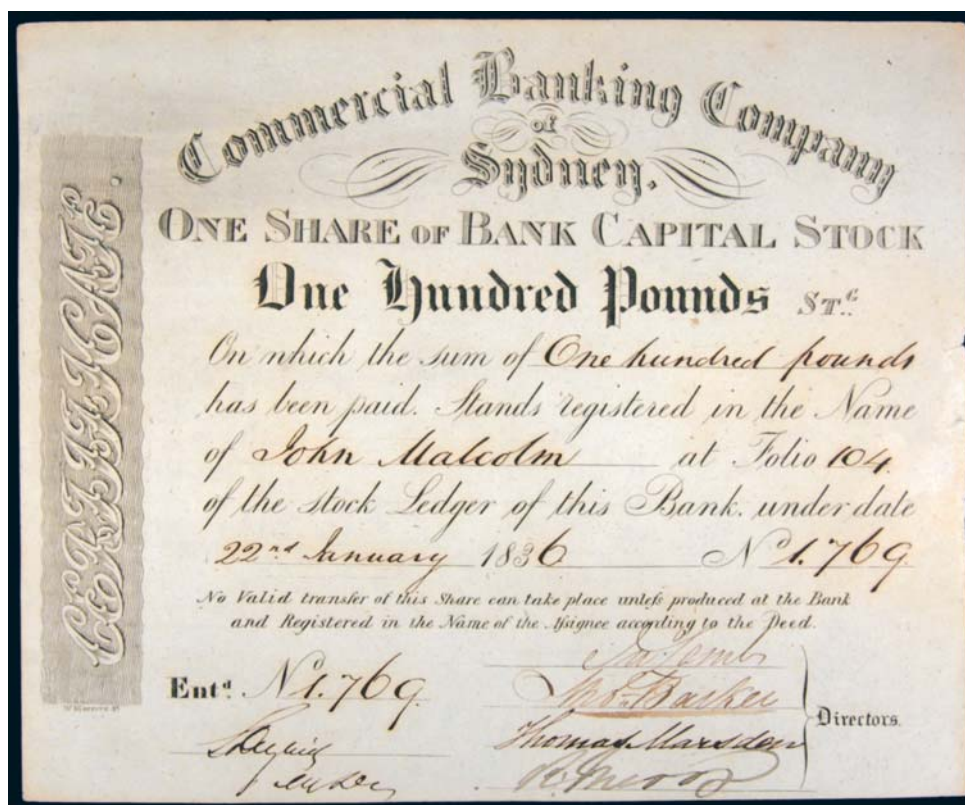 Commercial Banking Company
of
Sydney.
ONE SHARE OF BANK CAPITAL STOCK
One Hundred Pounds ST.G
On which the sum of One hundred pounds
has been paid. Stands registered in the Name
of John Malcolm at Folio 104
of the stock Ledger of this Bank. under date
22nd January 1836 No 1.769
No Valid transfer of this Share can take place unleſs produced at the Bank
and Registered in the Name of the Aſsignee according to the Deed.
Entd. No 1.769.
Thos. Barker
Thomas Marsden
Directors.
CERTIFICATE.